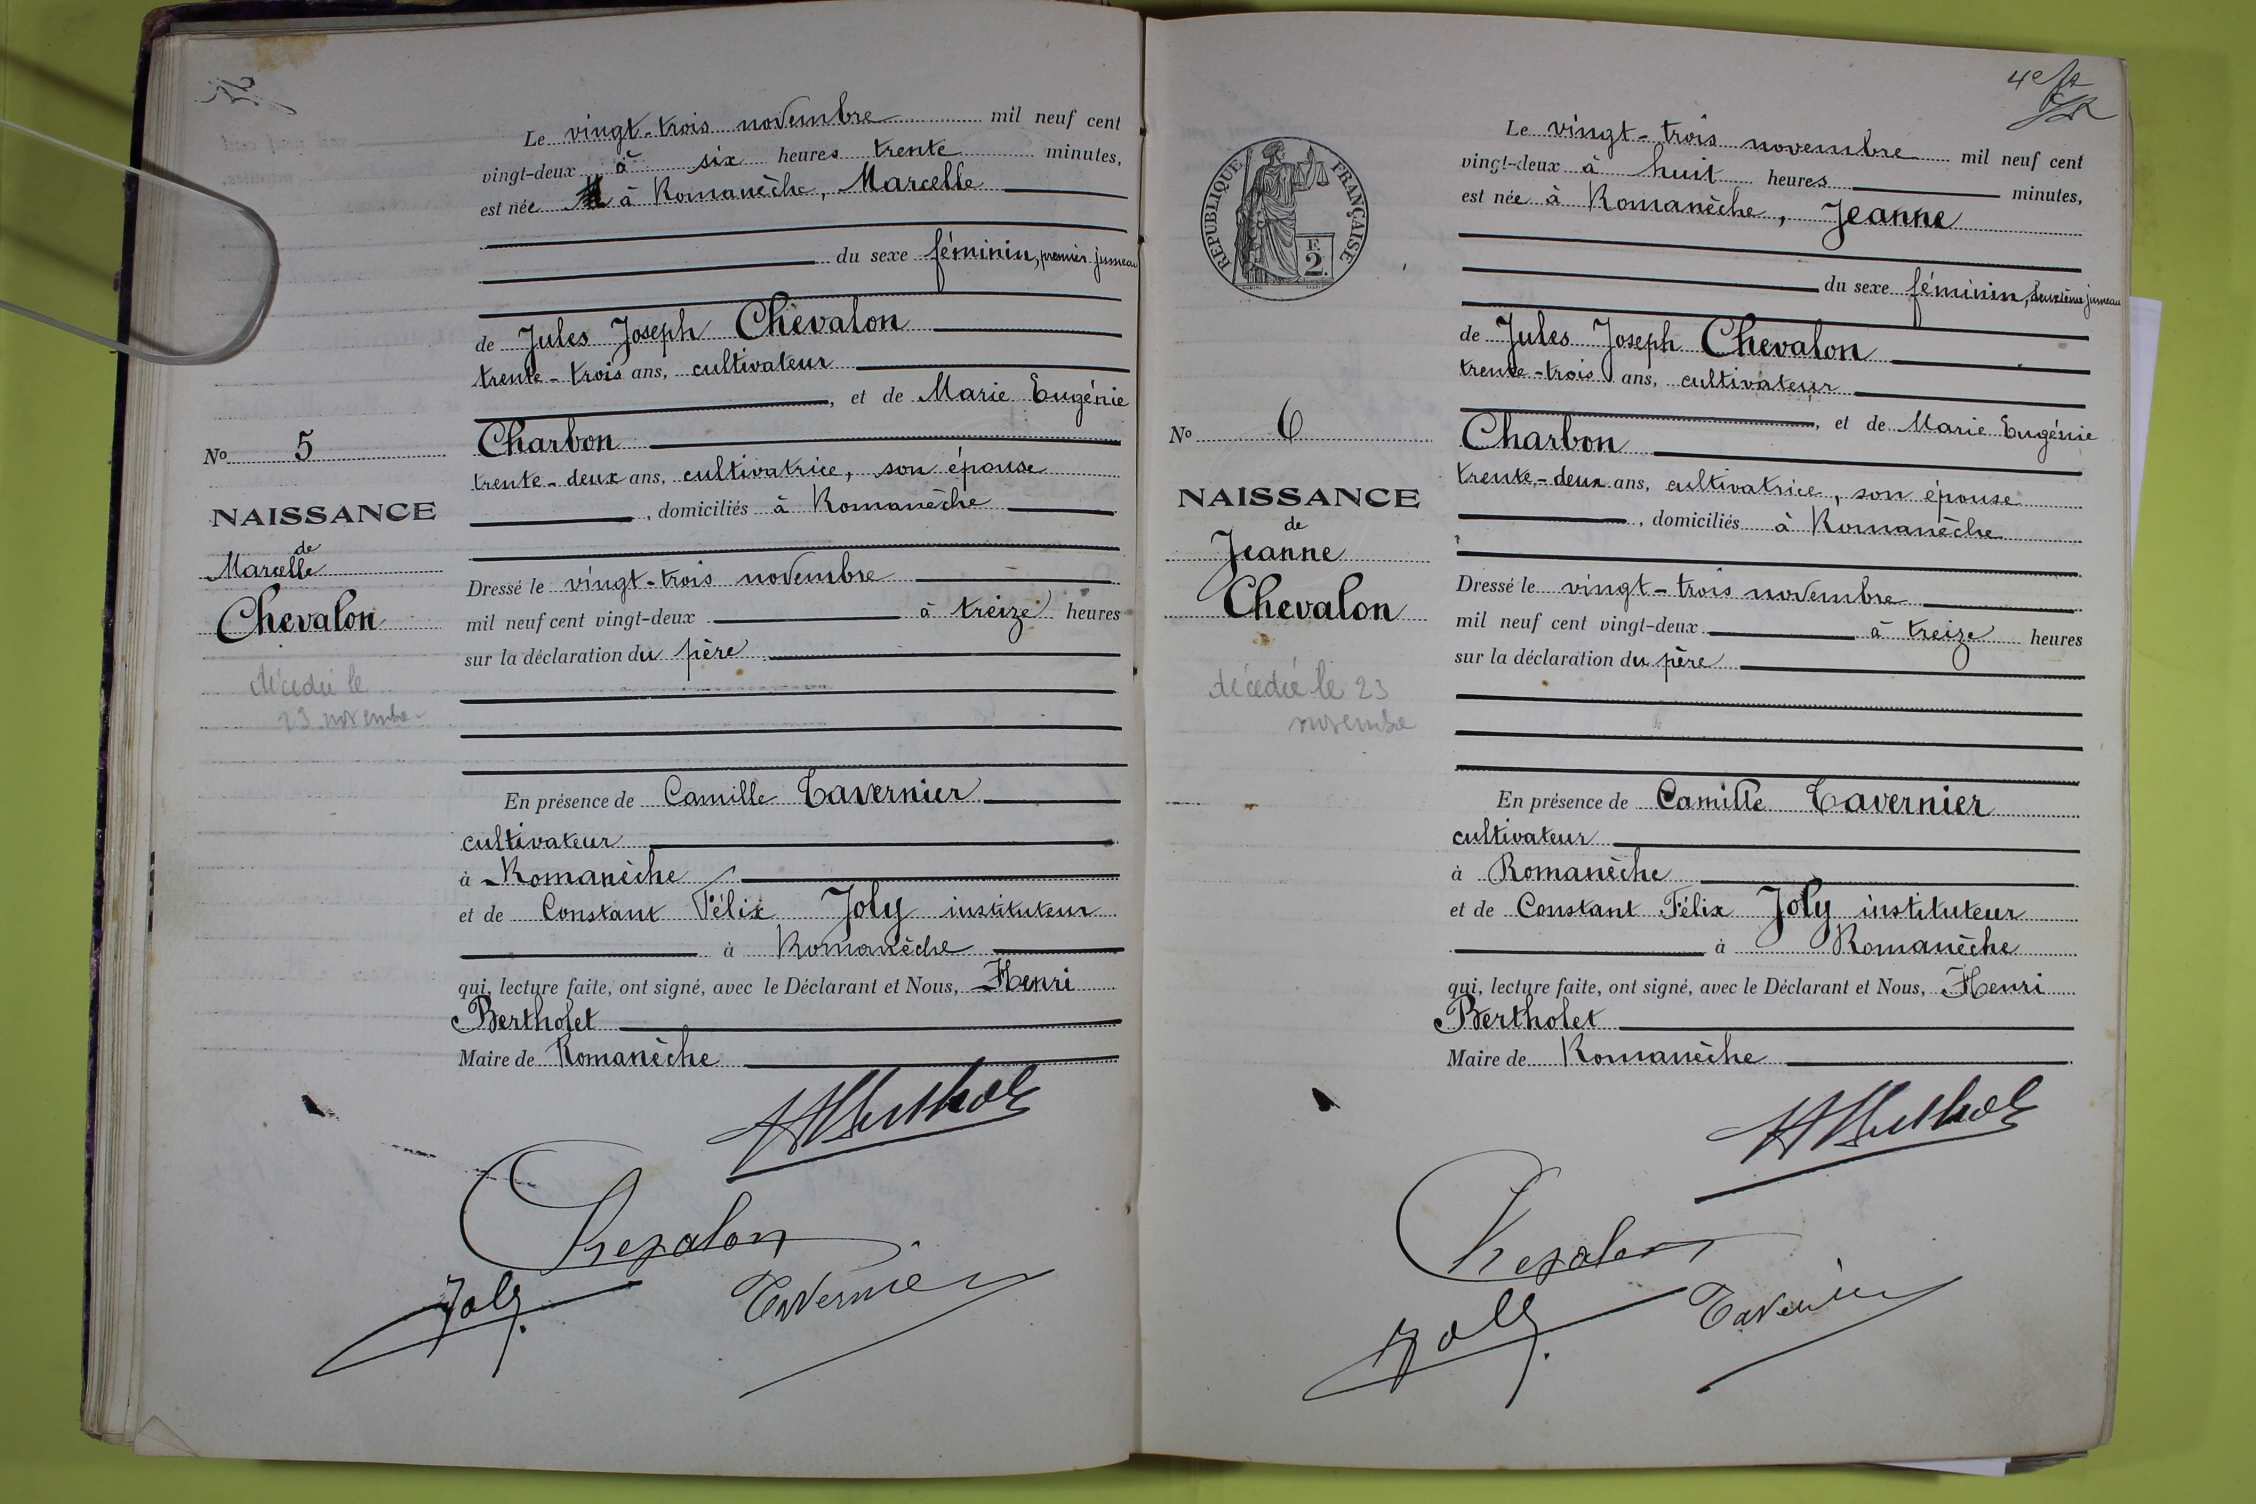 Le vingt-trois novembre mil neuf cent
vingt-deux à six heures trente minutes,
est née à Romanèche, Marcelle
du sexe féminin, premier jumeau
de Jules Joseph Chevalon
trente-trois ans, cultivateur
, et de Marie Eugénie
Charbon
trente-deux ans, cultivatrice, son épouse
, domiciliés à Romanèche
Dressé le vingt-trois novembre
mil neuf cent vingt-deux à treize heures
sur la déclaration du père
En présence de Camille Tavernier
cultivateur
à Romanèche
et de Constant Félix Joly instituteur
à Romanèche
qui, lecture faite, ont signé, avec le Déclarant et Nous, Henri
Bertholet
Maire de Romanèche
No 5
NAISSANCE
de
Marcelle
Chevalon
décédée le
23 novembre
HBerthol
Chevalon
Joly
Tavernier
4e
RÉPUBLIQUE FRANÇAISE
F.
2.
Le vingt-trois novembre mil neuf cent
vingt-deux à huit heures minutes,
est née à Romanèche, Jeanne
du sexe féminin, deuxième jumeau
de Jules Joseph Chevalon
trente-trois ans, cultivateur
, et de Marie Eugénie
Charbon
trente-deux ans, cultivatrice, son épouse
, domiciliés à Romanèche
Dressé le vingt-trois novembre
mil neuf cent vingt-deux à treize heures
sur la déclaration du père
En présence de Camille Tavernier
cultivateur
à Romanèche
et de Constant Félix Joly instituteur
à Romanèche
qui, lecture faite, ont signé, avec le Déclarant et Nous, Henri
Bertholet
Maire de Romanèche
No 6
NAISSANCE
de
Jeanne
Chevalon
décédée le 23
novembre
HBerthol
Chevalon
Joly
Tavernier